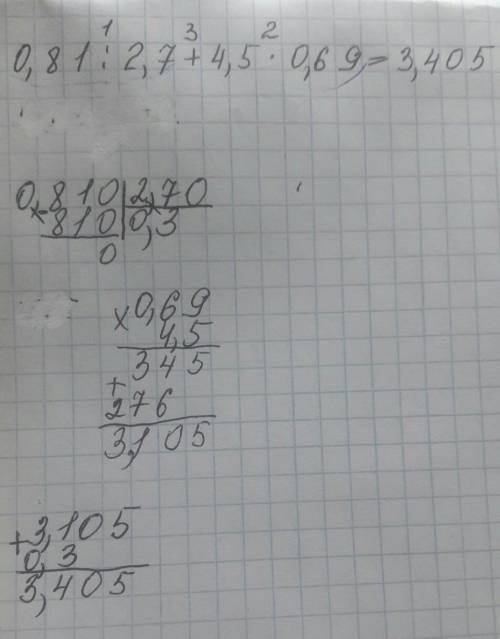 1 3 2
0,81 : 2,7 + 4,5 · 0,69 = 3,405
0,810 | 2,70
- 810 | 0,3
0
× 0,69
4,5
345
+
276
3,105
+ 3,105
0,3
3,405